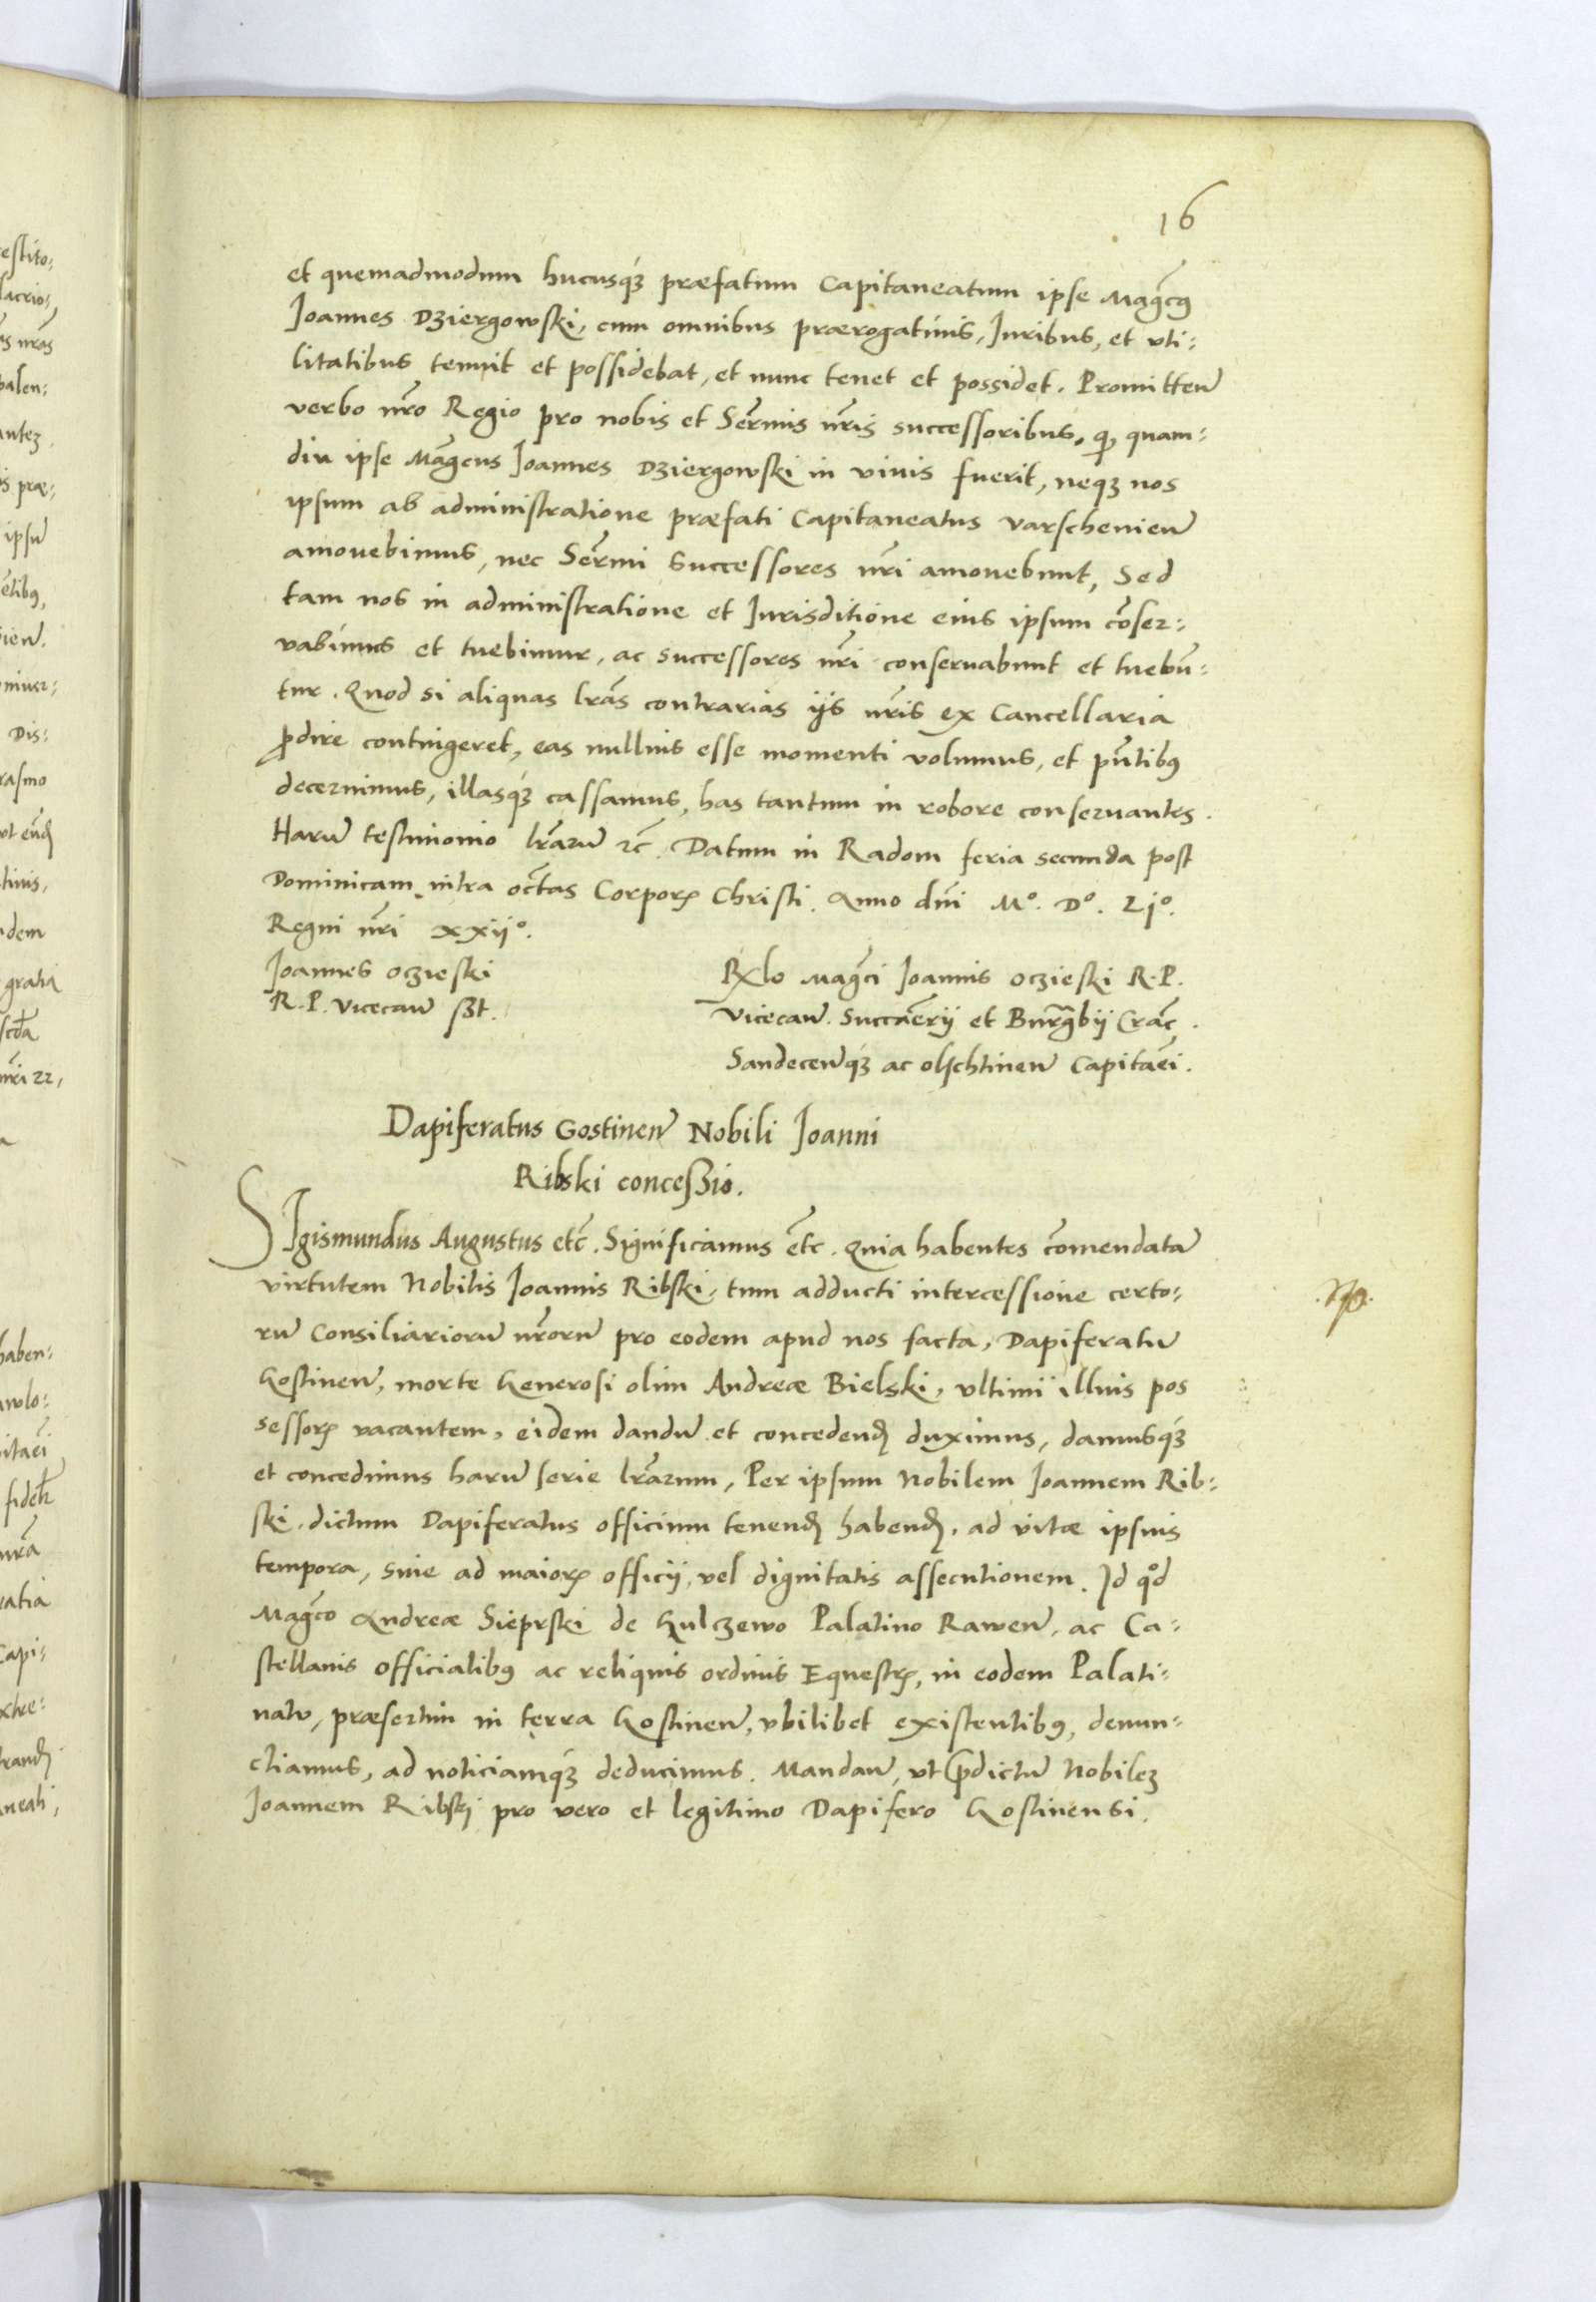 16
et quemadmodum hucusq́ꝫ præfatum Capitaneatum ipse Mag̃cꝰ
Joannes Dziergowski, cum omnibus prærogatiuis, Juribus, et vti-
litatibus tenuit et possidebat, et nunc tenet et possidet. Promitteñ
verbo nr̃o Regio pro nobis et Ser̃mis nr̃is successoribus, ꝙ quam-
diu ipse Mag̃cus Joannes Dziergowski in viuis fuerit, neqꝫ nos
ipsum ab administratione præfati Capitaneatus varschenień
amouebimus, nec Ser̃mi Successores nr̃i amouebunt, Sed
tam nos in administratione et Jurisditione eius ipsum cõser-
vabimus et tuebimur, ac successores nr̃i conseruabunt et tuebũ-
tur. Quod si aliquas lr̃as contrarias ijs nr̃is ex Cancellaria
ꝓdire contingeret, eas nullius esse momenti volumus, et pñtibꝰ
decernimus, illasq́ꝫ cassamus, has tantum in robore conseruantes.
Harũ testimonio lr̃arũ ꝛc̃. Datum in Radom feria secunda post
Dominicam intra oct̃as Corporꝭ Christi. Anno dñi Mº. Dº. Ljº.
Regni nr̃i xxijº.
Joannes oczieski
R. P. Vicecañ sszt.
Rx̃lo Mag̃ci Joannis oczieski R. P.
Vicecañ. Succam̃erij et Burg̃bij Crac̃.
Sandeceñq́ꝫ ac olschtineñ Capitañei.
Dapiferatus Gostineñ Nobili Joanni
Ribski concessio.
SIgismundus Augustus etc̃. Significamus etc̃. Quia habentes cõmendatã
virtutem Nobilis Joannis Ribski, tum adducti intercessione certo-
rũ Consiliariorũ nr̃orũ pro eodem apud nos facta, Dapiferatũ
Gostineñ, morte Generosi olim Andreæ Bielski, vltimi illius pos
sessorꝭ vacantem, eidem dandũ et concedendꝭ duximus, damusq́ꝫ
et concedimus harũ serie lr̃arum, Per ipsum Nobilem Joannem Rib-
ski, dictum Dapiferatus officium tenendꝭ habendꝭ, ad vitæ ipsius
tempora, siue ad maiorꝭ officij, vel dignitatis assecutionem. Id qd̃
Mag̃co Andreæ Sieprski de Gulczewo Palatino Raweñ, ac Ca-
stellanis officialibꝰ ac reliquis ordinis Equestrꝭ, in eodem Palati-
natu, præsertim in terra Gostineñ, vbilibet existentibꝰ, denun-
ctiamus, ad noticiamq́ꝫ deducimus. Mandañ, vt p̃dictũ Nobilẽ
Joannem Ribski pro vero et legitimo Dapifero Gostinensi.